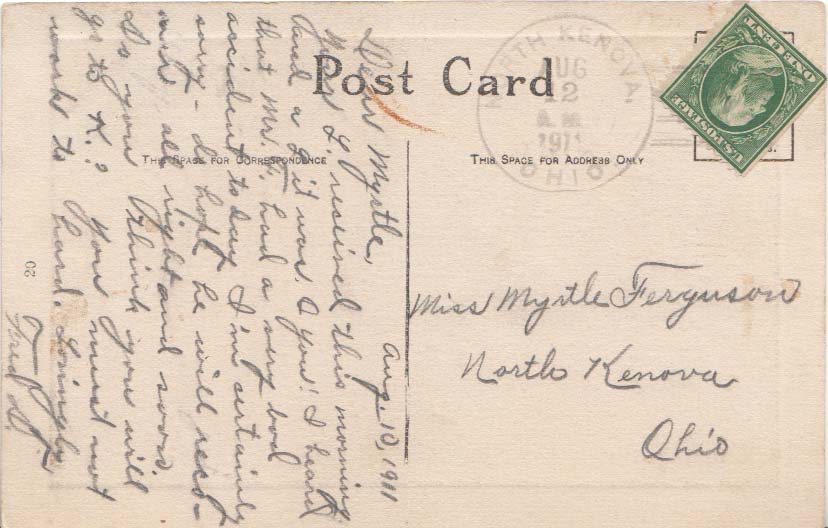 Post Card
THIS SPACE FOR CORRESPONDENCE
THIS SPACE FOR ADDRESS ONLY
NORTH KENOVA
AUG
12
A.M.
1911
OHIO
U.S. POSTAGE
ONE CENT
Aug. 10, 1911
Dear Myrtle,
L. received this morning.
And a it was. I heard
that Mr. F. had a very bad
accident today I'm certainly
sorry - do hope he will reco-
all right and soon.
Do you think you will
go to K.? You must not
work to hard. Lovingly
Fred
20
Miss Myrtle Ferguson
North Kenova
Ohio